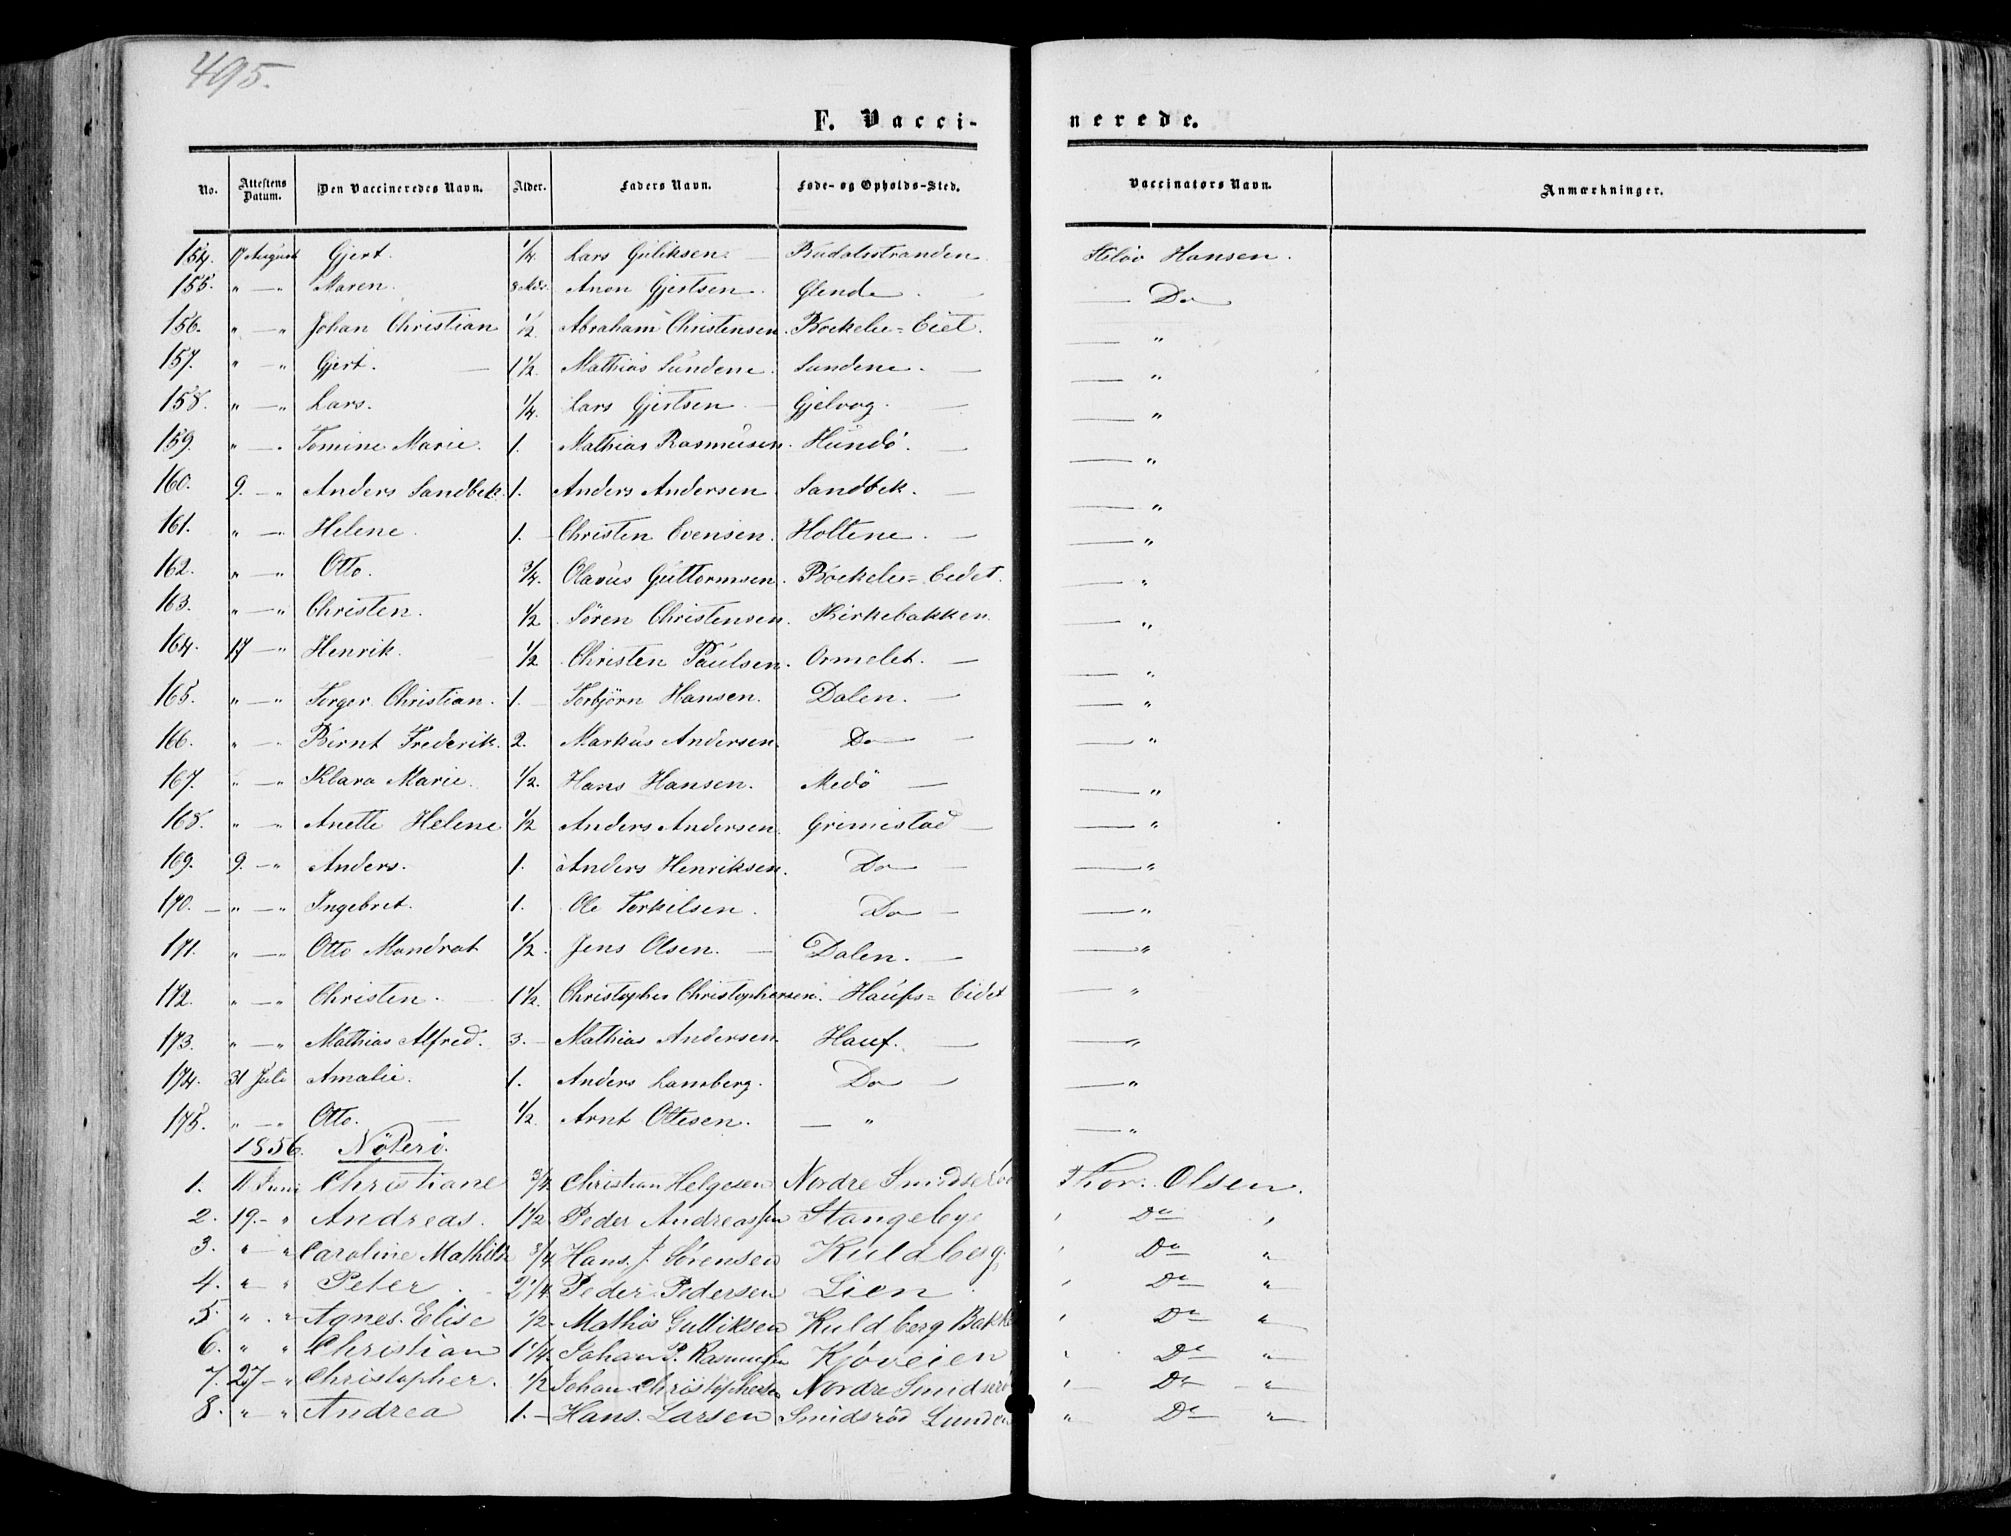 495.
F. Vacci-nerede.
No. Attestens Datum. Den Vaccineredes Navn. Alder. Faders Navn. Føde- og Opholds-Sted. Vaccinators Navn. Anmærkninger.
154. 17 August Gjert. 1/4. Lars Guliksen. — Budalsstranden Hansen.
155. " — " Maren. 8 Mdr. Anon Gjertsen. Glende. — — Do
156. " — " Johan Christian 1/2. Abraham Christensen. Bockelie=Eiet. — "
157. " — " Gjert. — 1 1/2. Mathias Sundene. Sundene. — — "
158. " — " Lars. 1/4. Lars Gjertsen — Gjelvog. — — "
159. " — " Tomine Marie. 1. Mathias Rasmusen. Hundö. — — "
160. 9. — " Anders Sandbek. 1. Anders Andersen. Sandbek. — — "
161. " — " Helene. 1. Christen Evensen. Holtene. — — "
162. " — " Otto. 3/4. Olavus Guttormsen. Bockelie=Eidet. — "
163. " — " Christen. 1/2 Sören Christensen. Kirkebakken. — "
164. 17 — " Henrik. 1/2 Christen Paulsen. Ormelet. — — "
165. " — " Torger Christian. 1. Torbjörn Hansen. Dalen. — — "
166. " — " Bernt Frederik. 2. Markus Andersen. Do — — "
167. " — " Klara Marie. 1/2. Hans Hansen. Medö — — "
168. " — " Anette Helene 1/2 Anders Andersen. Grimestad — — "
169. 9. — " Anders. 1. Anders Henriksen. Do — — "
170. " — " Ingebret. 1. Ole Terkilsen. Do — — "
171. " — " Otto Mandrat 1/2. Jens Olsen. — Dalen. — — "
172. " — " Christen. 1 1/2. Christopher Christophersen. Haufs=Eidet — "
173. " — " Mathias Alfred. 3. — Mathias Andersen. Hauf. — — "
174. 31 Juli Amalie. 1. Anders Lamberg. Do — — "
175. " — " Otto. — 1/2. Arnt Ottesen. — " — "
1856. Nöterö.
1. 11 Juni Christiane 3/4 Christian Helgesen Nordre Smidserö Thor. Olsen.
2. 19. — " Andreas. 1 1/2. Peder Andreassen Stangeby " Do "
3. " — " Caroline Mathilde 3/4 Hans J. Sörensen Kuldberg. " Do "
4. " — " Peter 2 1/4. Peder Pedersen Lien " Do "
5. " — " Agnes Elise 1/2. Mathis Gulliksen Kuldberg Bakke " Do "
6. " " Christian 1 1/4. Johan P. Rasmussen Kjöveien " Do "
7. 27 — " Christopher. 1/2 Johan Christophersen Nordre Smidserö " Do "
8. " — " Andrea 1. — Hans. Larsen Smidsröd Lunden " Do "